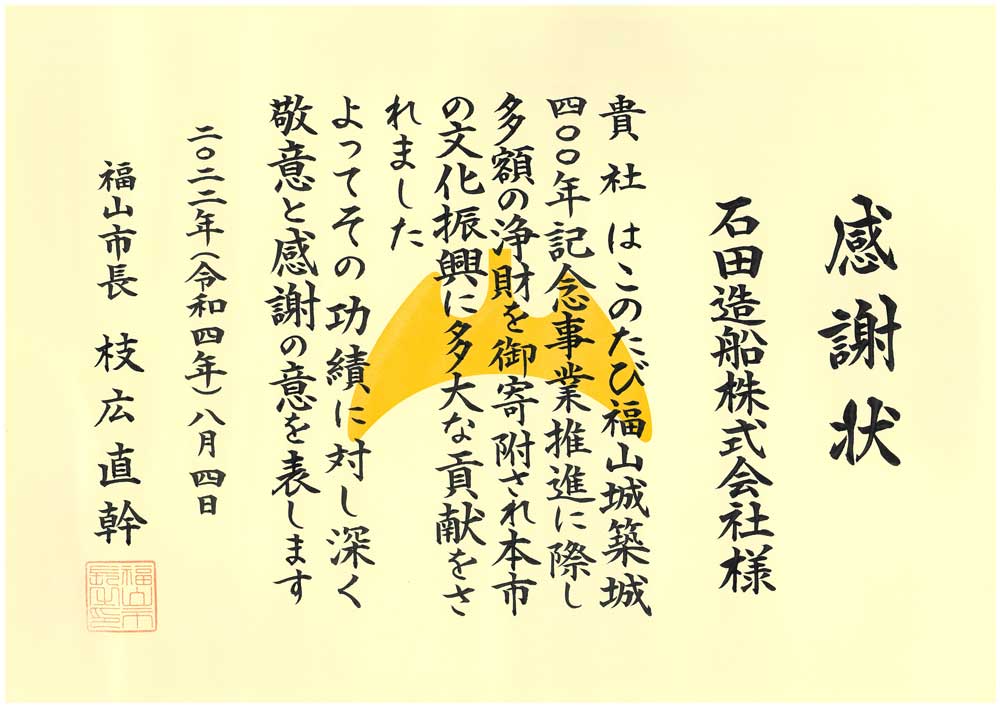 感謝状
石田造船株式会社様
貴社はこのたび福山城築城
四〇〇年記念事業推進に際し
多額の浄財を御寄附され本市
の文化振興に多大な貢献をさ
れました
よってその功績に対し深く
敬意と感謝の意を表します
二〇二二年(令和四年)八月四日
福山市長 枝広直幹
福山市
長之印